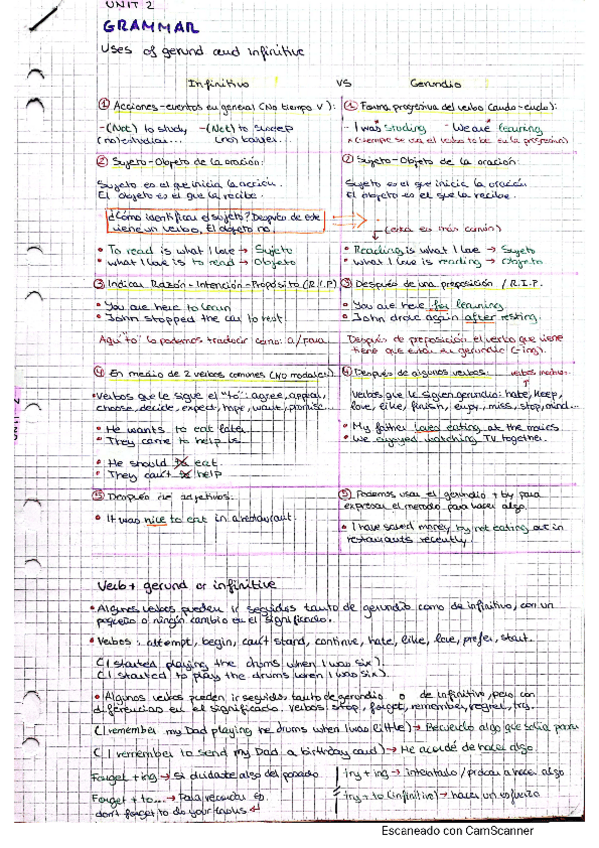 UNIT 2
GRAMMAR
Uses of gerund and infinitive
Infinitivo VS Gerundio
① Acciones-eventos en general (No tiempo V):
-(Not) to study, -(Not) to
(no) estudiar... (no)
② Sujeto-Objeto de la oración:
Sujeto es el que inicia la acción.
El objeto es el que la recibe.
¿Cómo identificar el sujeto? Después de este
viene un verbo, El objeto no.
• To read is what I love → Sujeto
• what I love is to read → Objeto
③ Indicar Razón-Intención-Propósito (R.I.P)
• You are here to learn
• John stopped the car to rest.
Aquí "to" lo podemos traducir como: a/para.
④ En medio de 2 verbos comunes (NO modales).
• Verbos que le sigue el "to": agree, appear,
choose, decide, expect, hope, want, promise...
• He wants to eat later.
• They came to help us.
• He should to eat.
• They can't to help
⑤ Después de adjetivos.
• It was nice to eat in a restaurant.
① Forma progresiva del verbo (ando-endo):
- I was studing - We are learning
(siempre se usa el verbo to be en la progresiva)
② Sujeto-Objeto de la oración:
Sujeto es el que inicia la oración
El objeto es el que la recibe.
(esta es más común)
• Reading is what I love → Sujeto
• what I love is reading → Objeto
③ Después de una preposición / R.I.P.
• You are here for learning
• John drove again after resting.
Después de preposición el verbo que viene
tiene que estar en gerundio (-ing).
④ Después de algunos verbos:
verbos
Verbos que le siguen gerundio: hate, keep,
love, like, finish, enjoy, miss, stop, mind...
• My father loves eating at the movies
• We enjoyed watching TV together.
⑤ Podemos usar el gerundio + by para
expresar el metodo para hacer algo.
• I have saved money by not eating out in
restaurants recently.
Verb + gerund or infinitive
• Algunos verbos pueden ir seguidos tanto de gerundio como de infinitivo, con un
pequeño o ningún cambio en el significado.
• Verbos: attempt, begin, can't stand, continue, hate, like, love, prefer, start.
(I started playing the drums when I was six).
(I started to play the drums when I was six).
• Algunos verbos pueden ir seguidos tanto de gerundio o de infinitivo, pero con
diferencias en el significado. Verbos: stop, forget, remember, regret, try.
(I remember my Dad playing the drums when I was little) → Recuerdo algo que solía pasar
(I remember to send my Dad a birthday card) → Me acordé de hacer algo.
Forget + ing → Si olvidaste algo del pasado
Forget + to... → Para recordar
don't forget to do your
try + ing → intentarlo / probar a hacer algo
try + to (infinitive) → hacer un esfuerzo
UNIT 2
Escaneado con CamScanner